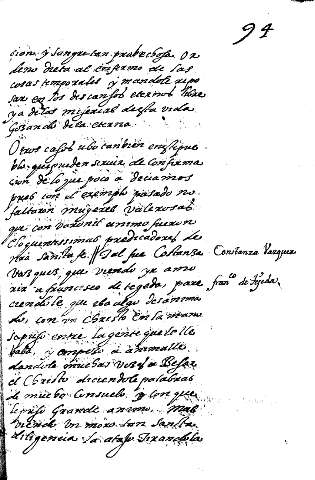 94
cion y sangre tan probechosa Or
deno dieta al enfermo de las
cosas temporales y mandole repo
sar en los descansos eternos libre
ya de las miserias de esta vida
Gozando de la eterna.
Otros casos ubo tambien en este pue
blo, que pueden seruir de confirma
cion de lo que poco a deciamos
pues con el exemplo pasado no
faltaron mugeres valerosas
que con varonil animo fueron
eloquentissimas predicadores de
nra santa fe. Tal fue Costanza
Vazquez, que viendo ya mo
rir a francisco de tegeda, pare
ciendole que ebo algo desanima
do, con un Christo en la mano
se puso entre la gente que le lle
baba, y empeço a animalle
dandole muchas vezes a Besar
el Christo diciendole palabras
de mucho consuelo, y con que
le puso Grande animo.
viendo un moro tan santa
diligencia la atajo tirandola
Constanza Vazquez
franco de Tejeda